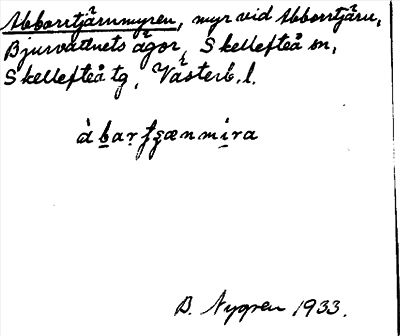 Abborrtjärnmyren, myr vid Abborrtjärn,
Bjurvattnets ägor, Skellefteå sn,
Skellefteå tg, Västerb. l.
àbarʃʒænmíra
B. Nygren 1933.